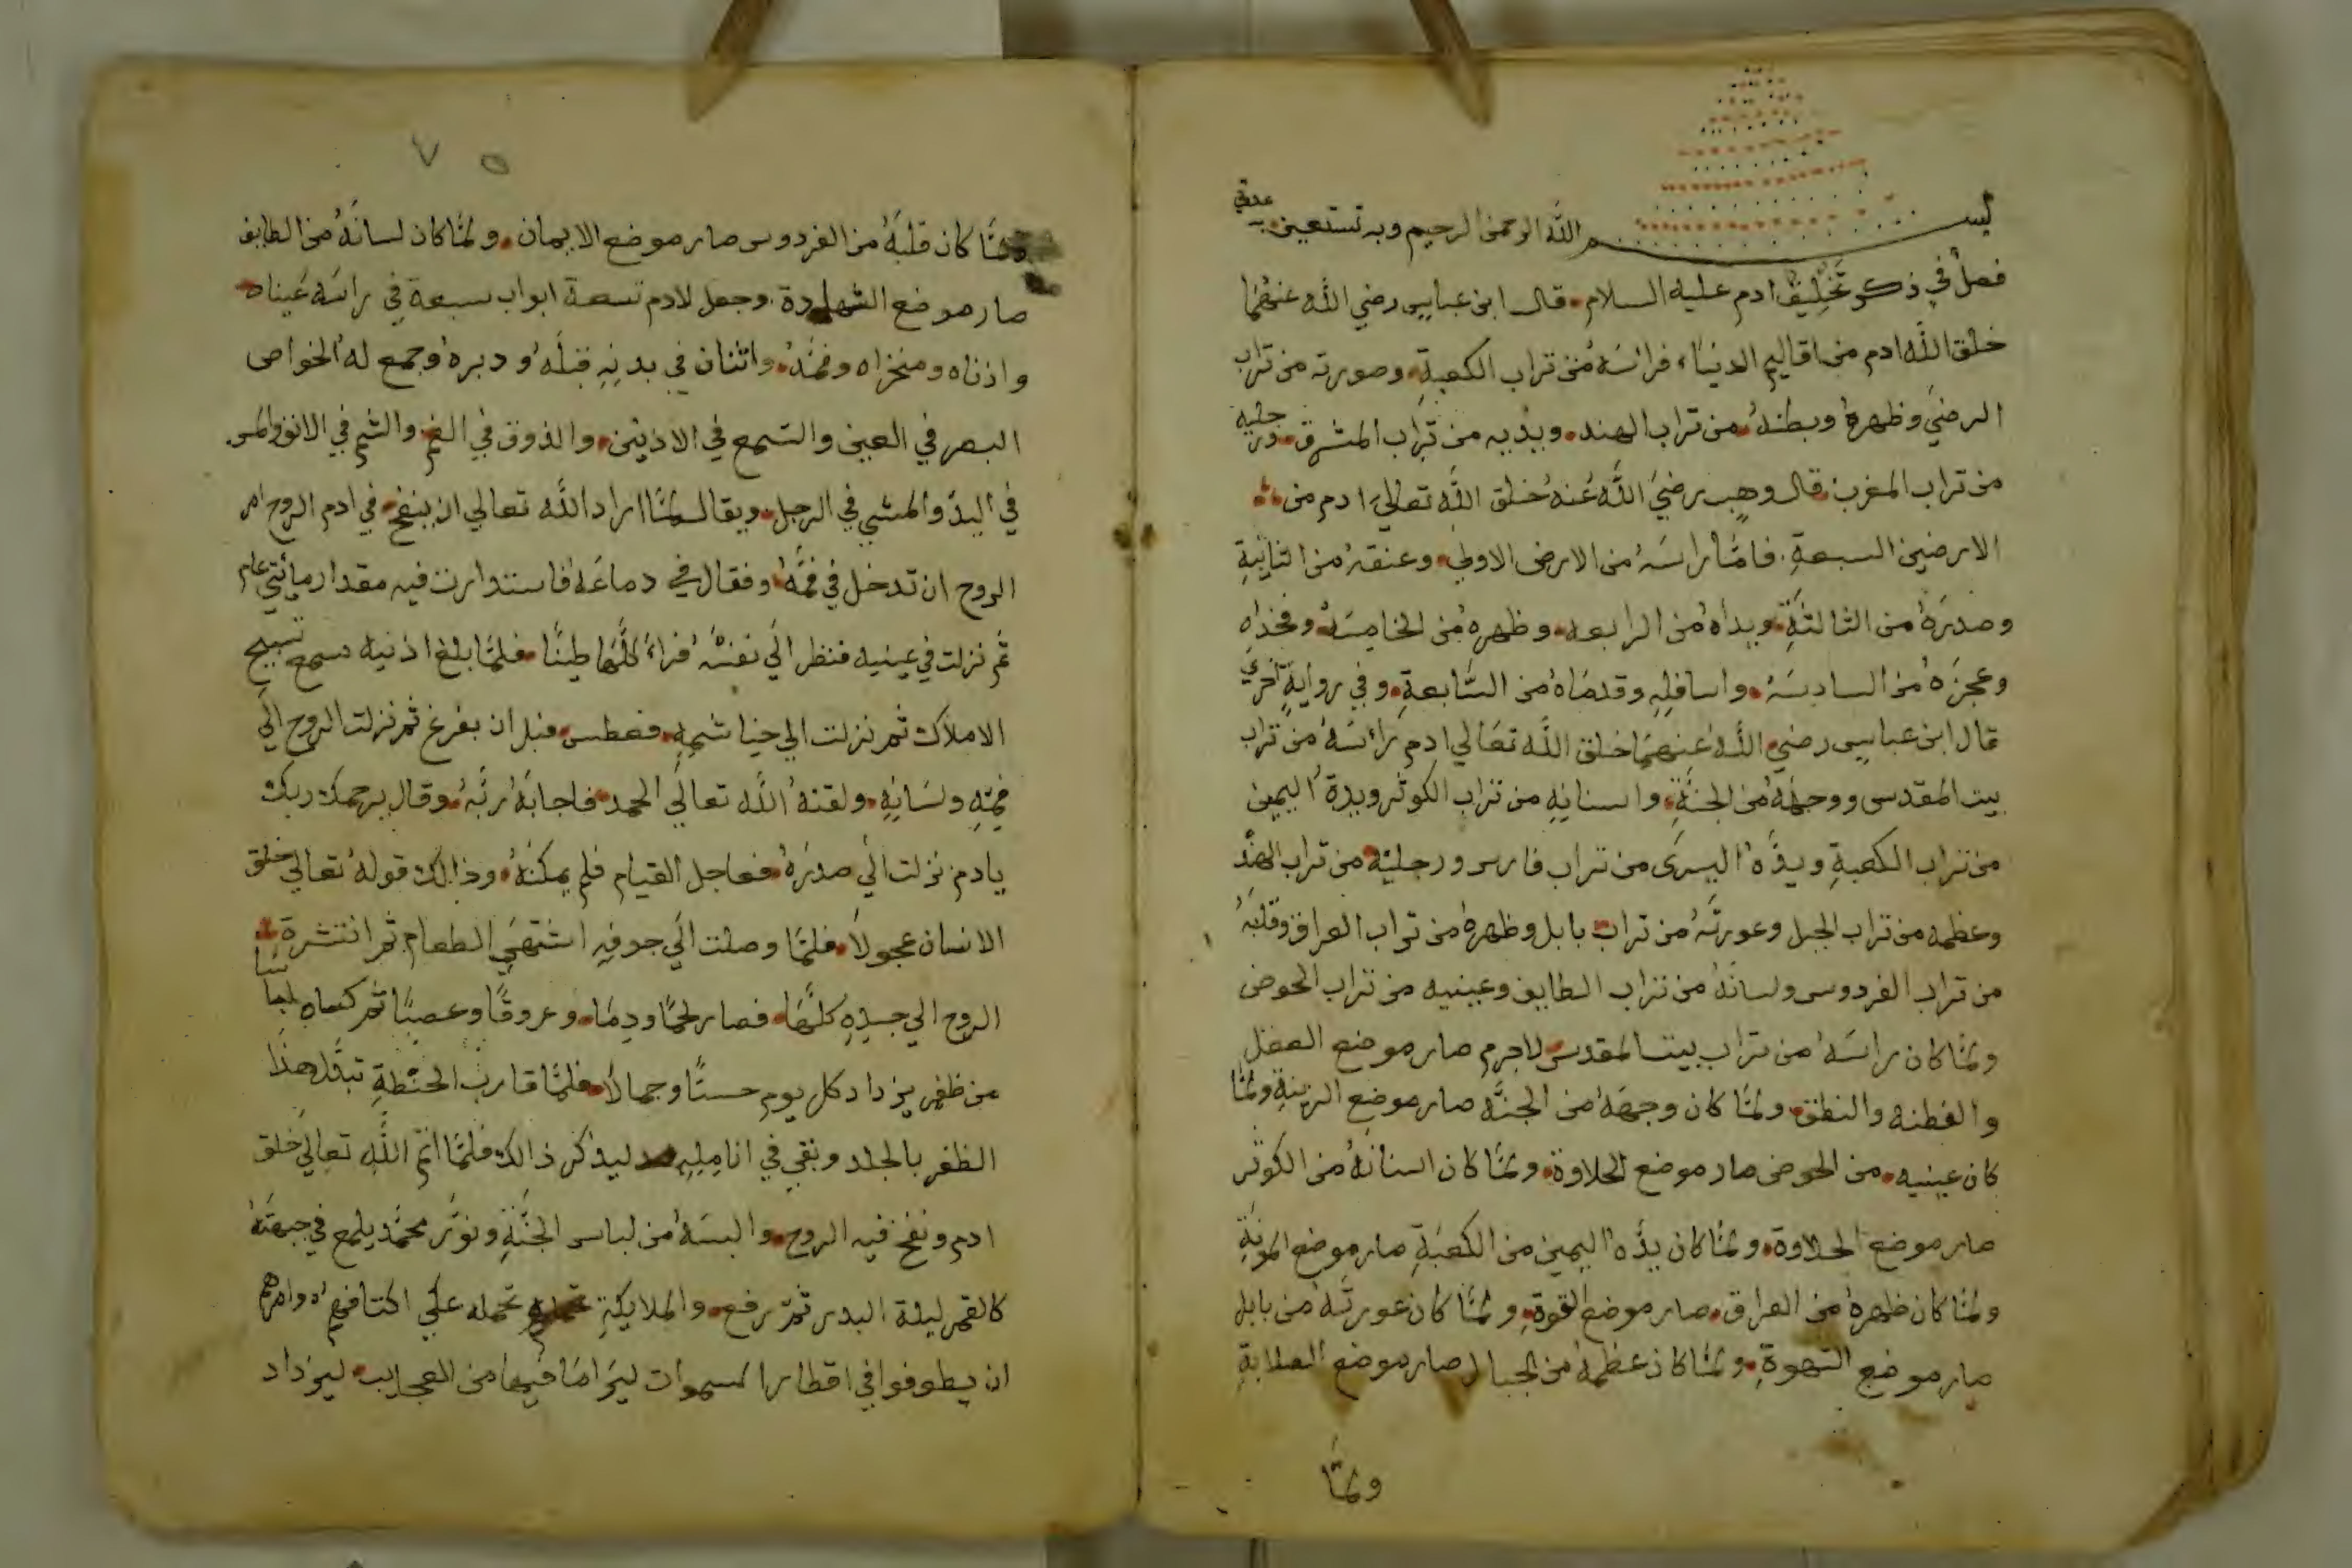 بسم الله الرحمن الرحيم وبه نستعين
فصل في ذكر تخليق ادم عليه السلام قال ابن عباس رضي الله عنهما
خلق الله ادم من اقاليم الدنياء فرائسه من تراب الكعبة وصورته من تراب
الرضي وظهره وبطنه من تراب الهند ويديه من تراب المشرق ورجليه
من تراب المغرب قال وهب رضي الله عنه خلق الله تعالي ادم من
الارضين السبعة فاما رائسه من الارض الاولي وعنقه من الثانية
وصدره من الثالثة ويداه من الرابعه وظهره من الخامسة وفخذاه
وعجزه من السادسة واسافله وقدماه من السابعة وفي رواية اخري
قال ابن عباس رضي الله عنهما خلق الله تعالي ادم رائسه من تراب
بيت المقدس ووجهه من الجنة واسنانه من تراب الكوثر ويده اليمين
من تراب الكعبة ويده اليسرى من تراب فارس ورجليه من تراب الهند
وعظمه من تراب الجبل وعورته من تراب بابل وظهره من تراب العراق وقلبه
من تراب الفردوس ولسانه من تراب الطايف وعينيه من تراب الحوض
ولما كان رائسه من تراب بيت المقدس لاجرم صار موضع العقل
والفطنه والنطق ولما كان وجهه من الجنه صار موضع الزينة ولما
كان عينيه من الحوض صار موضع الحلاوة ولما كان اسنانه من الكوثر
صار موضع الحلاوة ولما كان يده اليمين من الكعبة صار موضع المونة
ولما كان ظهره من العراق صار موضع القوة ولما كان عورته من بابل
صار موضع الشهوة ولما كان عظمه من الجبال صار موضع الصلابة
ولما
٧ ٥
ولما كان قلبه من الفردوس صار موضع الايمان ولما كان لسانه من الطايف
صار موضع الشهادة وجعل لادم تسعة ابواب سبعة في رائسه عيناه
واذناه ومنخراه وفمه واثنان في بدنه قبله ودبره وجمع له الخواص
البصر في العين والسمع في الاذنين والذوق في الفم والشم في الانف والمس
في اليد والمشي في الرجل ويقال لما اراد الله تعالي ان ينفخ في ادم الروح امر
الروح ان تدخل في فمه وفقال في دماغه فاستدارت فيه مقدار مائتي عام
ثم نزلت في عينيه فنظر الي نفسه فراء كلها طينا فلما بلغ اذنيه سمع تسبيح
الاملاك ثم نزلت الي خياشيمه فعطس قبل ان يفرغ ثم نزلت الروح الي
فمه ولسانه ولقنه الله تعالي الحمد فاجابه ربه وقال يرحمك ربك
يادم نزلت الي صدره فعاجل القيام فلم يمكنه وذالك قوله تعالي خلق
الانسان عجولا فلما وصلت الي جوفه اشتهي الطعام ثم انتشرة
الروح الي جسده كلها فصار لحما ودما وعروقا وعصبا ثم كساه لباسا
من ظفر يزداد كل يوم حسنا وجمالا فلما قارب الحنطة تبدل هذا
الظفر بالجلد وبقي في انامليه ليذكر ذالك فلما اتم الله تعالي خلق
ادم ونفخ فيه الروح والبسه من لباس الجنة ونور محمد يلمع في جبهته
كالقمر ليلة البدر ثم رفع والملايكة تحمله علي اكتافهم وامرهم
ان يطوفوا في اقطار السموات ليرا ما فيها من العجايب ليزداد